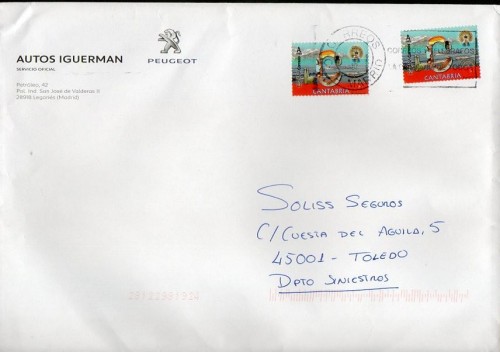 AUTOS IGUERMAN
SERVICIO OFICIAL
PEUGEOT
Pol. Ind. San José de Valderas II
28918 Leganés (Madrid)
A
CANTABRIA
CORREOS
MADRID
A
CANTABRIA
Soliss Seguros
C/ Cuesta del Aguila, 5
45001 - Toledo
Dpto Siniestros